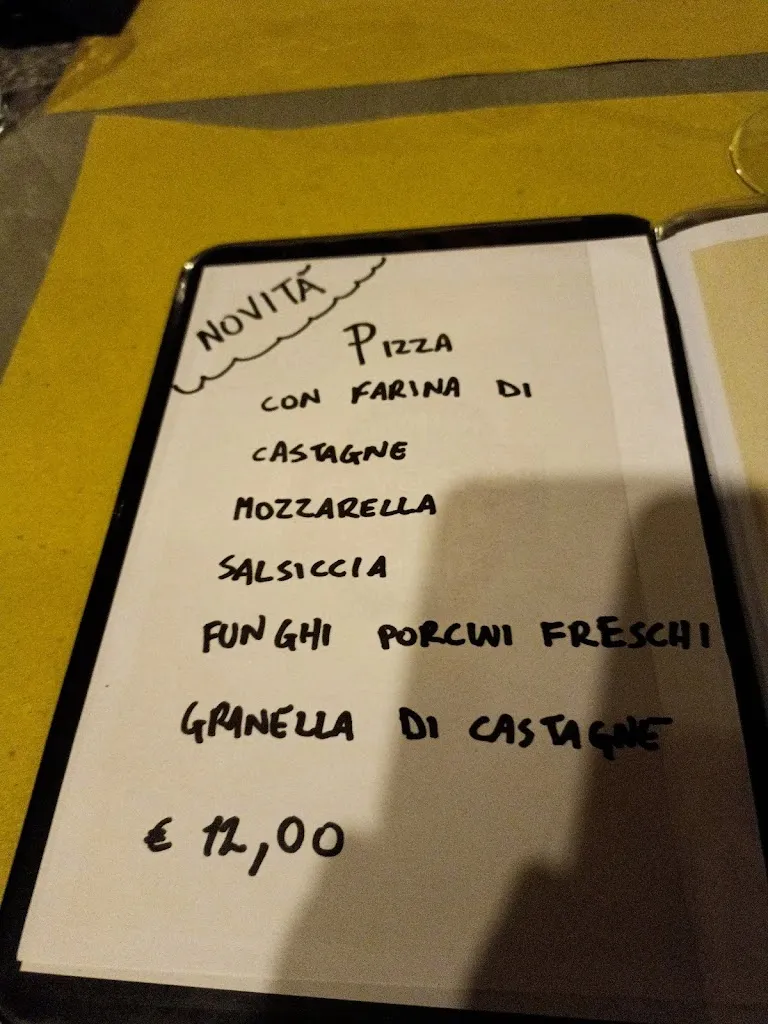 NOVITÀ
PIZZA
CON FARINA DI
CASTAGNE
MOZZARELLA
SALSICCIA
FUNGHI PORCINI FRESCHI
GRANELLA DI CASTAGNE
€ 12,00